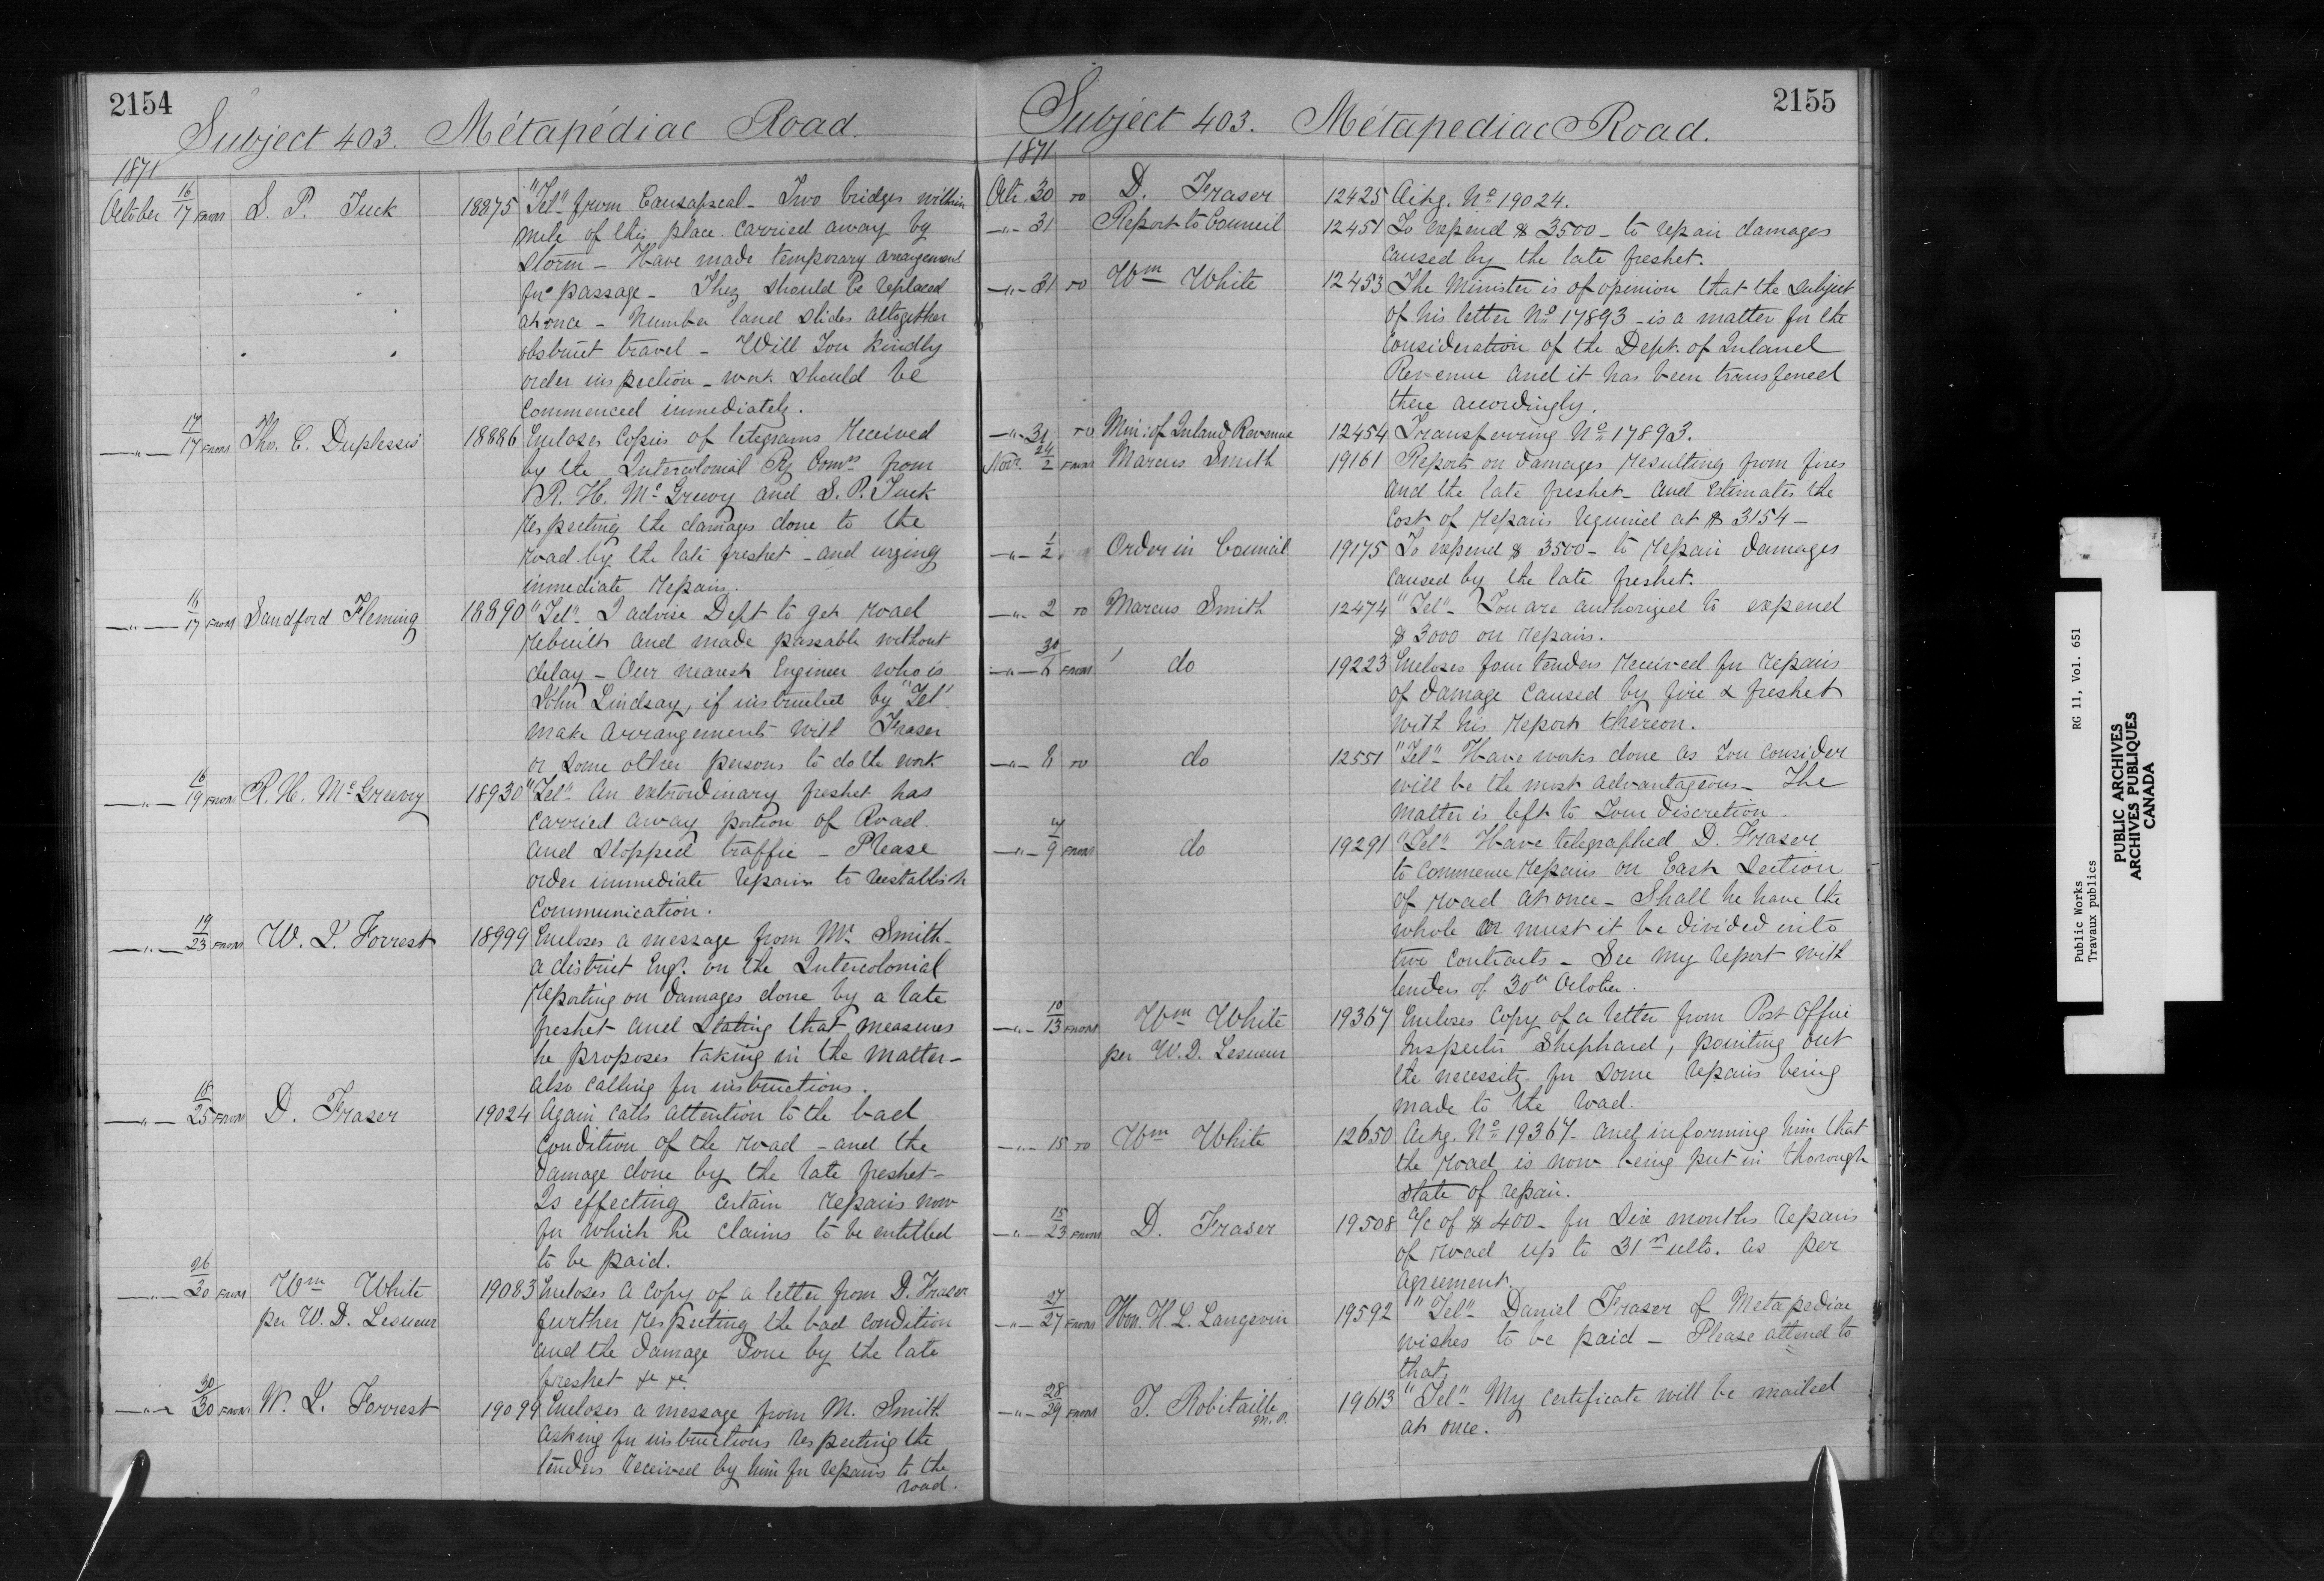 2154
Subject 403. Métapédiac Road.
1871
October 16/17 FROM S. P. Tuck 18875 "Tel" from Causapscal - Two bridges within
mile of this place carried away by
storm - Have made temporary arrangement
for passage - They should be replaced
at once - Number land slides altogether
obstruct travel - Will You kindly
order inspection - work should be
commenced immediately.
—"— 17/17 FROM Tho. C. Duplessis 18886 Encloses Copies of telegrams received
by the Intercolonial Ry Comrs from
R. H. McGreevy and S. P. Tuck
respecting the damages done to the
road by the late freshet - and urging
immediate repairs.
—"— 16/17 FROM Sandford Fleming 18890 "Tel" I advise Dept to get road
rebuilt and made passable without
delay - Our nearest Engineer who is
John Lindsay, if instructed by "Tel"
make arrangements with Fraser
or some other persons to do the work
—"— 16/19 FROM R. H. McGreevy 18930 "Tel" An extrordinary freshet has
carried away portion of Road
and stopped traffic - Please
order immediate repairs to reestablish
communication.
—"— 19/23 FROM W. L. Forrest 18999 Encloses a message from Mr. Smith -
a district Engr. on the Intercolonial
reporting on damages done by a late
freshet and stating that measures
he proposes taking in the matter -
also calling for instructions.
—"— 18/25 FROM D. Fraser 19024 Again calls attention to the bad
condition of the road - and the
damage done by the late freshet -
Is effecting certain repairs now
for which he claims to be entitled
to be paid.
—"— 26/30 FROM Wm White 19083 Encloses a copy of a letter from D. Fraser
per W. D. Lesueur further respecting the bad condition
and the damage Done by the late
freshet &c &c.
—"— 30/30 FROM W. L. Forrest 19099 Encloses a message from M. Smith
asking for instructions respecting the
tenders received by him for repairs to the
road.
2155
Subject 403. Métapediac Road.
1871
Octr 30 TO D. Fraser 12425 Ackg. No 19024.
—"— 31 Report to Council 12451 To expend $ 3500 - to repair damages
caused by the late freshet.
—"— 31 TO Wm White 12453 The Minister is of openion that the subject
of his letter No 17893 - is a matter for the
consideration of the Dept. of Inland
Revenue and it has been transfered
there accordingly.
—"— 31 TO Min: of Inland Revenue 12454 Transferring No 17893.
Novr. 24/2 FROM Marcus Smith 19161 Reports on damages resulting from fires
and the late freshet - and estimates the
cost of repairs required at $ 3154 -
—"— 1/2 Order in Council 19175 To expend $ 3500 - to repair damages
caused by the late freshet.
—"— 2 TO Marcus Smith 12474 "Tel" - You are authorized to expend
$ 3000 on repairs.
—"— 30/6 FROM do 19223 Encloses four tenders received for repairs
of damage caused by fire & freshet
with his report thereon.
—"— 8 TO do 12551 "Tel" Have works done as You consider
will be the most advantageous - The
matter is left to Your discretion.
—"— 4/9 FROM do 19291 "Tel" Have telegraphed D. Fraser
to commence repairs on East Section
of road at once - Shall he have the
whole or must it be divided into
two contracts - See my report with
tenders of 30th October.
—"— 10/13 FROM Wm White 19367 Encloses Copy of a letter from Post Office
per W. D. Lesueur Inspector Shephard, pointing out
the necessity for some repairs being
made to the road.
—"— 15 TO Wm White 12650 Ackg. No 19367 - and informing him that
the road is now being put in thorough
state of repair.
—"— 15/23 FROM D. Fraser 19508 a/c of $ 400 - for Six months repairs
of road up to 31st ulto. as per
agreement.
—"— 27/27 FROM Hon. H. L. Langevin 19592 "Tel" Daniel Fraser of Metapediac
wishes to be paid - Please attend to
that.
—"— 28/29 FROM T. Robitaille M.P. 19613 "Tel" My certificate will be mailed
at once.
Public Works
Travaux publics
RG 11, Vol. 651
PUBLIC ARCHIVES
ARCHIVES PUBLIQUES
CANADA